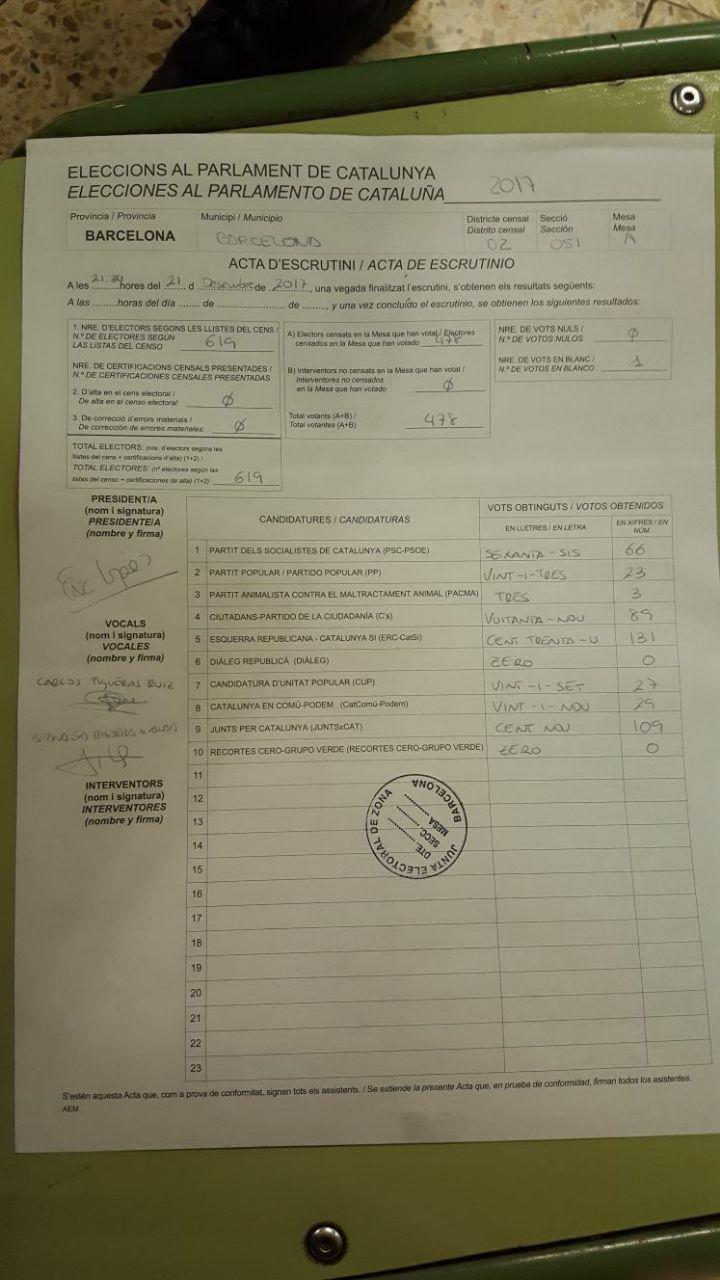 ELECCIONS AL PARLAMENT DE CATALUNYA
ELECCIONES AL PARLAMENTO DE CATALUÑA 2017
Província / Provincia
BARCELONA
Municipi / Municipio
BARCELONA
Districte censal
Distrito censal
02
Secció
Sección
051
Mesa
Mesa
A
ACTA D'ESCRUTINI / ACTA DE ESCRUTINIO
A les 21:34 hores del 21 d Desembre de 2017, una vegada finalitzat l'escrutini, s'obtenen els resultats següents:
A las ......... horas del día ....... de ................ de ........, y una vez concluído el escrutinio, se obtienen los siguientes resultados:
1. NRE. D'ELECTORS SEGONS LES LLISTES DEL CENS /
N.º DE ELECTORES SEGÚN
LAS LISTAS DEL CENSO 619
NRE. DE CERTIFICACIONS CENSALS PRESENTADES /
N.º DE CERTIFICACIONES CENSALES PRESENTADAS
2. D'alta en el cens electoral /
De alta en el censo electoral: Ø
3. De correcció d'errors materials /
De corrección de errores materiales: Ø
TOTAL ELECTORS: (nre. d'electors segons les
llistes del cens + certificacions d'alta) (1+2) /
TOTAL ELECTORES: (nº electores según las
listas del censo + certificaciones de alta) (1+2) 619
A) Electors censats en la Mesa que han votat / Electores
censados en la Mesa que han votado 478
B) Interventors no censats en la Mesa que han votat /
Interventores no censados
en la Mesa que han votado Ø
Total votants (A+B) /
Total votantes (A+B) 478
NRE. DE VOTS NULS /
N.º DE VOTOS NULOS Ø
NRE. DE VOTS EN BLANC /
N.º DE VOTOS EN BLANCO 1
PRESIDENT/A
(nom i signatura)
PRESIDENTE/A
(nombre y firma)
VOCALS
(nom i signatura)
VOCALES
(nombre y firma)
CARLOS FIGUERAS RUIZ
INTERVENTORS
(nom i signatura)
INTERVENTORES
(nombre y firma)
CANDIDATURES / CANDIDATURAS
VOTS OBTINGUTS / VOTOS OBTENIDOS
EN LLETRES / EN LETRA
EN XIFRES / EN
NÚM.
1 PARTIT DELS SOCIALISTES DE CATALUNYA (PSC-PSOE) SEIXANTA-SIS 66
2 PARTIT POPULAR / PARTIDO POPULAR (PP) VINT-I-TRES 23
3 PARTIT ANIMALISTA CONTRA EL MALTRACTAMENT ANIMAL (PACMA) TRES 3
4 CIUTADANS-PARTIDO DE LA CIUDADANÍA (C's) VUITANTA-NOU 89
5 ESQUERRA REPUBLICANA - CATALUNYA SI (ERC-CatSí) CENT TRENTA-U 131
6 DIÀLEG REPUBLICÀ (DIÀLEG) ZERO 0
7 CANDIDATURA D'UNITAT POPULAR (CUP) VINT-I-SET 27
8 CATALUNYA EN COMÚ-PODEM (CatComú-Podem) VINT-I-NOU 29
9 JUNTS PER CATALUNYA (JUNTSxCAT) CENT NOU 109
10 RECORTES CERO-GRUPO VERDE (RECORTES CERO-GRUPO VERDE) ZERO 0
11
12
13
14
15
16
17
18
19
20
21
22
23
JUNTA ELECTORAL DE ZONA
BARCELONA
DTE. ............
SECC. ............
MESA ............
S'estén aquesta Acta que, com a prova de conformitat, signen tots els assistents. / Se extiende la presente Acta que, en prueba de conformidad, firman todos los asistentes.
AEM